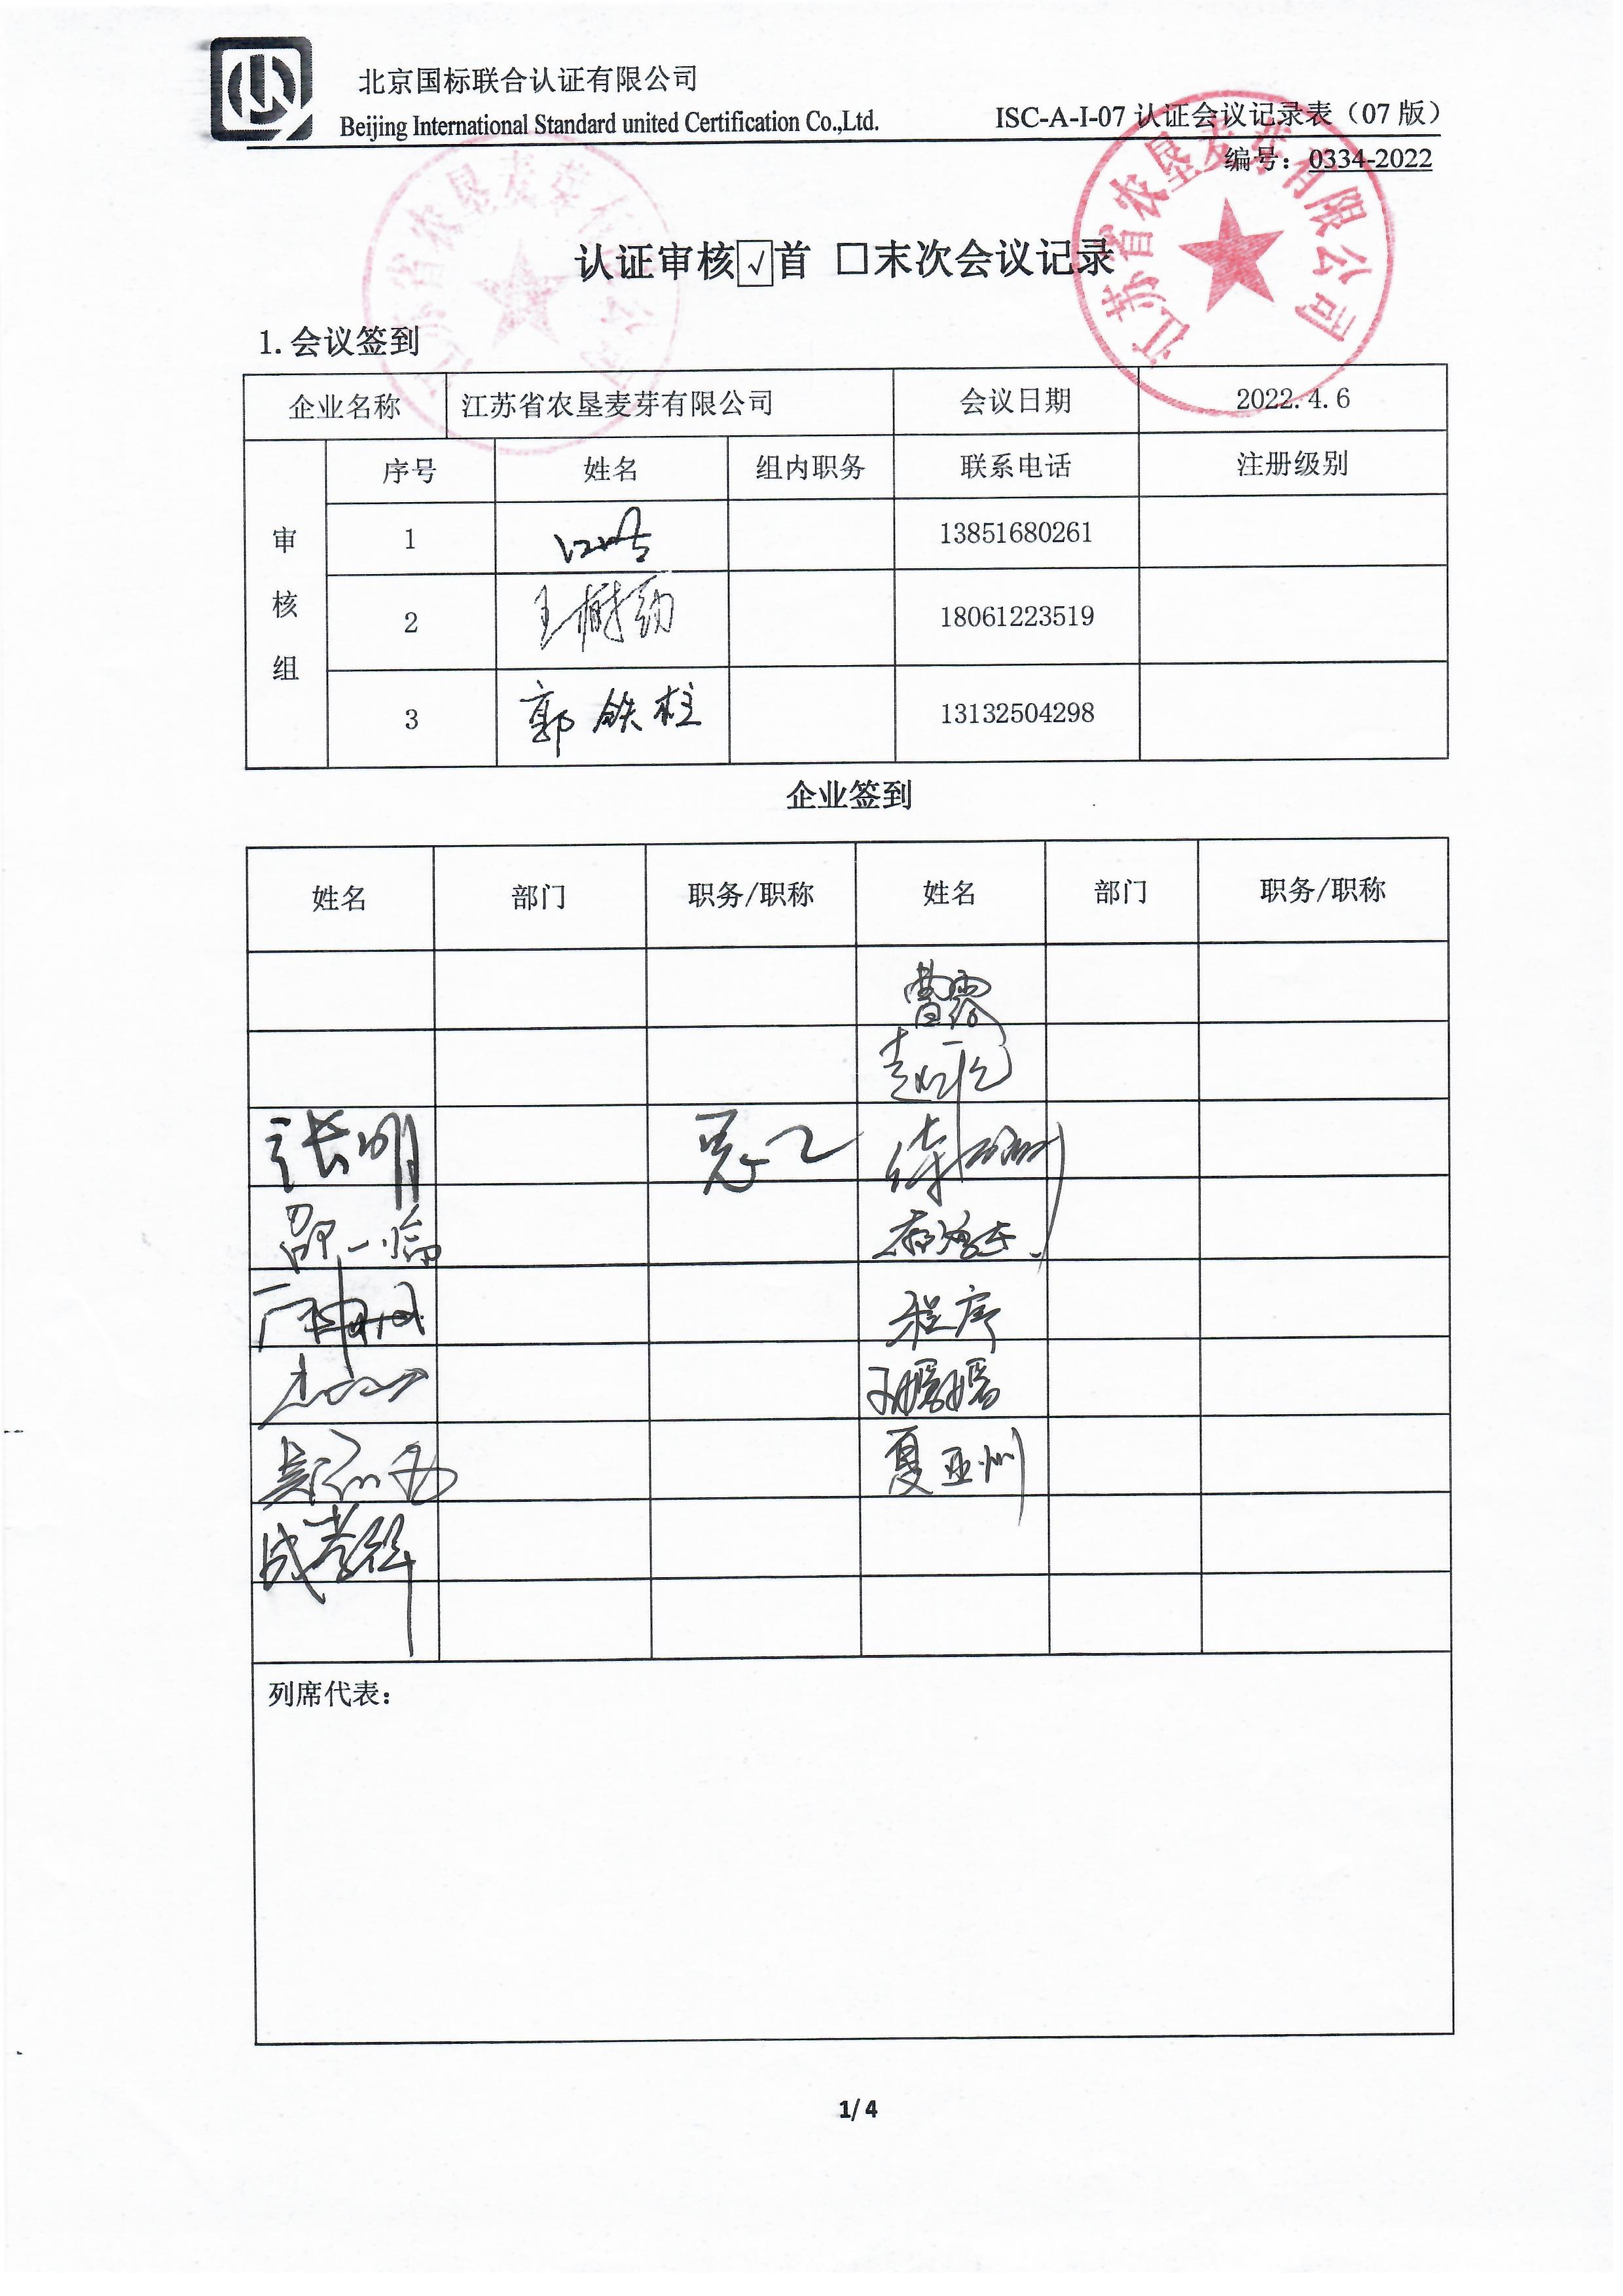 北京国标联合认证有限公司
Beijing International Standard united Certification Co.,Ltd.
ISC-A-I-07 认证会议记录表（07 版）
编号：0334-2022
江苏省农垦麦芽有限公司
江苏省农垦麦芽有限公司
认证审核☑首 □末次会议记录
1.会议签到
企业名称 江苏省农垦麦芽有限公司 会议日期 2022.4.6
审核组 序号 姓名 组内职务 联系电话 注册级别
1 13851680261
2 18061223519
3 郭铁柱 13132504298
企业签到
姓名 部门 职务/职称 姓名 部门 职务/职称
曹露
张明
邵一临
程序
夏亚洲
列席代表：
1/ 4